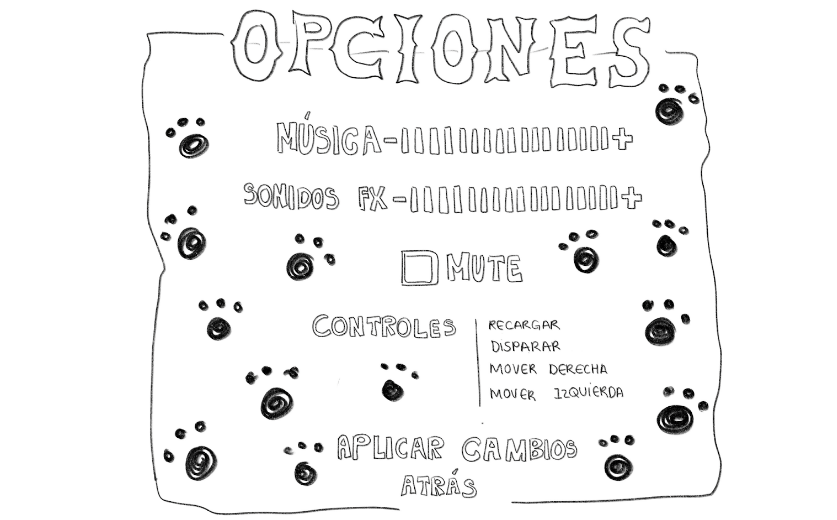 OPCIONES
MÚSICA - +
SONIDOS FX - +
MUTE
CONTROLES
RECARGAR
DISPARAR
MOVER DERECHA
MOVER IZQUIERDA
APLICAR CAMBIOS
ATRÁS